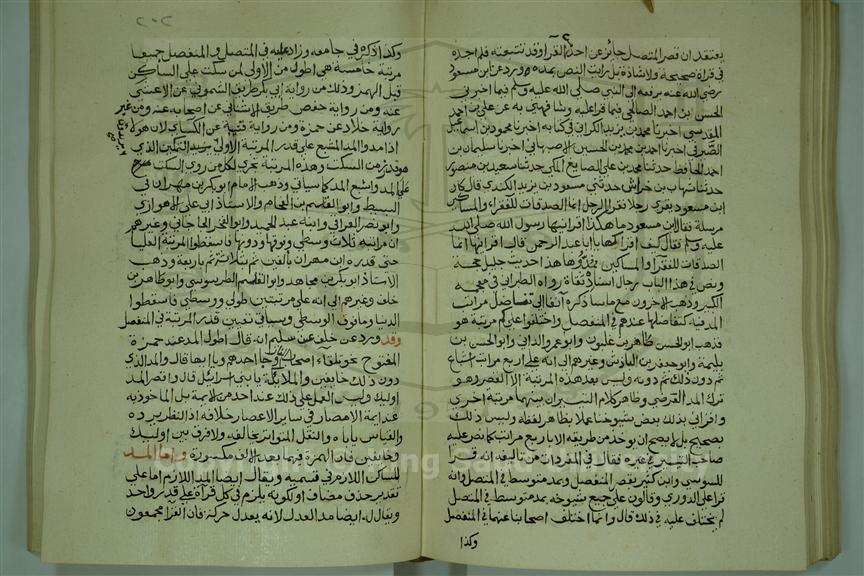 يعتقد ان قصر المتصل جائز عن احد القراء وقد تتبعته فلم اجده
في قراة صحيحة ولا شاذة بل رايت النص بمده ورد عن ابن مسعود
رضي الله عنه يرفعه الى النبي صلى الله عليه وسلم فيما اخبرني
الحسن ابن احمد الصالحي فيما قرا عليه وشافهني به عن علي بن احمد
المقدسي اخبرنا محمد بن ابي زيد الكراني في كتابه اخبرنا محمود بن اسماعيل
الصيرفي اخبرنا احمد بن محمد بن الحسين الاصبهاني اخبرنا سليمان بن
احمد الحافظ حدثنا محمد بن علي الصايغ المكي حدثنا سعيد بن منصور
حدثنا شهاب بن خراش حدثني مسعود بن يزيد الكندي قال كان
ابن مسعود يقري رجلا فقرا الرجل انما الصدقات للفقراء والمساكين
مرسلة فقال ابن مسعود ما هكذا اقرانيها رسول الله صلى الله
عليه وسلم فقال كيف اقراكها يا ابا عبد الرحمن قال اقرانيها انما
الصدقات للفقراء والمساكين فمدوها هذا حديث جليل حجة
ونص في هذا الباب رجال اسناده ثقاة رواه الطبراني في معجمه
الكبير وذهب الاخرون مع ما ساذكره آنفا الى تفاضل مراتب
المد فيه كتفاضلها عندهم في المنفصل واختلفوا على كم مرتبة هو
فذهب ابو الحسن طاهر بن غلبون وابو عمرو الداني وابو الحسن بن
بليمة وابو جعفر بن الباذش وغيرهم الى انه على اربع مراتب اشباع
ثم دون ذلك ثم دونه وليس بعد هذه المرتبة الا القصر وهو
ترك المد العرضي وظاهر كلام التيسير ان بينهما مرتبة اخرى
واقراني بذلك بعض شيوخنا عملا بظاهر لفظه وليس ذلك
بصحيح بل لا يصح ان يوخذ من طريقه الا باربع مراتب كما نص عليه
صاحب التيسير في غيره فقال في المفردات من تاليفه انه قرا
للسوسي وابن كثير بقصر المنفصل وبمد متوسط في المتصل وانه
قرا على الدوري وقالون على جميع شيوخه بمد متوسط في المتصل
لم يختلف عليه في ذلك قال وانما اختلف اصحابنا عنهما في المنفصل
وكذا
٢٠٢
وكذا ذكره في جامعه وزاد عليه في المتصل والمنفصل جميعا
مرتبة خامسة هي اطول من الاولى لمن سكت على الساكن
قبل الهمز وذلك من رواية ابي بكر طريق الشموني عن الاعشى
عنه ومن رواية حفص طريق الاشناني عن اصحابه عنه ومن غير
رواية خلاد عن حمزة ومن رواية قتيبة عن الكسائي لان هولاء
اذا مدوا المد المشبع على قدر المرتبة الاولى يريدون التمكين الذي
هو قدر زمن السكت وهذه المرتبة تجري لكل من روى السكت
على المد واشبع المد كما سياتي وذهب الامام ابو بكر بن مهران في
البسيط وابو القاسم بن الفحام والاستاذ ابي علي الاهوازي
وابو نصر العراقي وابنه عبد الحميد وابو الفخر الجاجاني وغيرهم
ان مراتبه ثلاث وسطى وفوقها ودونها فاسقطوا المرتبة العليا
حتى قدره ابن مهران بالفين ثم بثلاثة ثم باربعة وذهب
الاستاذ ابو بكر بن مجاهد وابو القاسم الطرسوسي وابو طاهر بن
خلف وغيرهم الى انه على مرتبتين طولى ووسطى فاسقطوا
الدنيا وما فوق الوسطى وسياتي تعيين قدر المرتبة في المنفصل
وقد ورد عن خلف عن سليم انه قال اطول المد عند حمزة
المفتوح نحو تلقاء اصحاب وجا احدهم ويا ايها قال والمد الذي
دون ذلك خايفين والملايكة يا بني اسرائيل قال واقصر المد
اوليك وليس العمل على ذلك عند احد من الايمة بل الماخوذ به
عند ايمة الامصار في ساير الاعصار خلافه اذ النظر يرده
والقياس ياباه والنقل المتواتر يخالفه ولا فرق بين اوليك
وخايفين فان الهمزة فيهما بعد الالف مكسورة واما المد
للساكن اللازم في قسميه ويقال ايضا المد اللازم اما على
تقدير حذف مضاف او لكونه يلزم في كل قراءة على قدر واحد
ويقال له ايضا مد العدل لانه يعدل حركة فان القراء مجمعون
يريدون